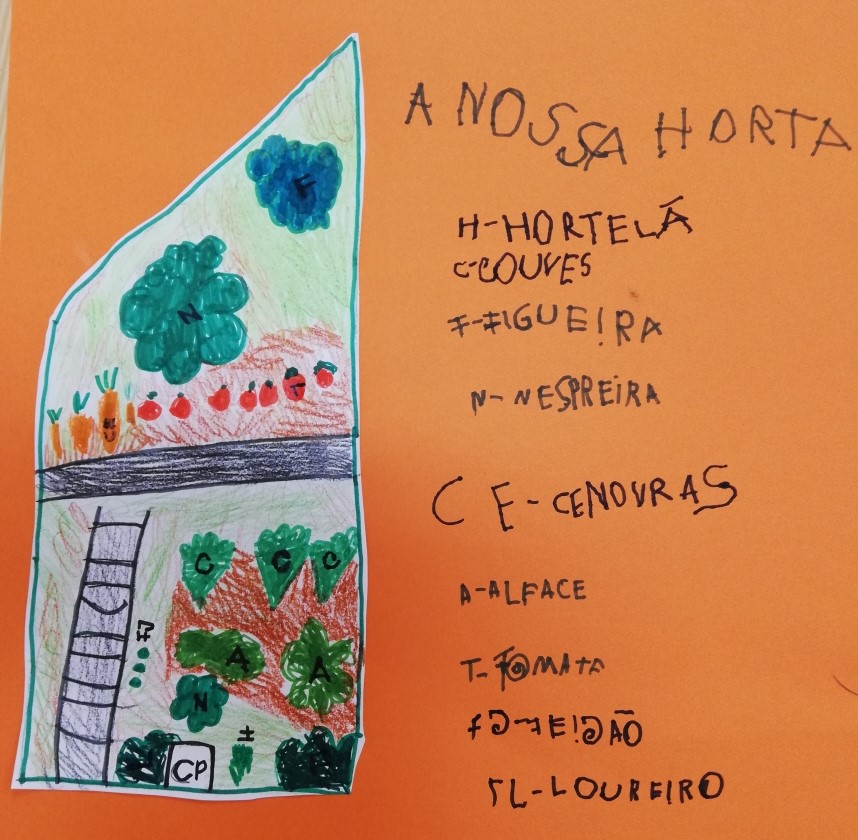 A NOSSA HORTA
H-HORTELÃ
C-COUVES
F-FIGUEIRA
N-NESPREIRA
CE-CENOURAS
A-ALFACE
T-TOMATE
FJ-FEIJÃO
L-LOUREIRO
F
N
T
C
C
C
FJ
A
A
N
H
CP